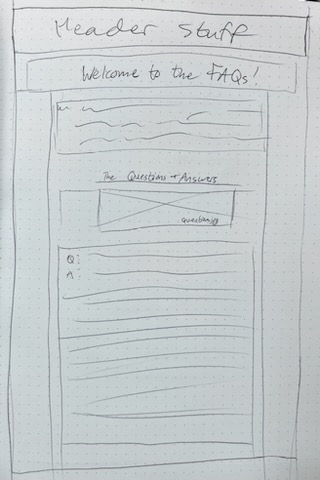 Header Stuff
Welcome to the FAQs!
The Questions + Answers
Q:
A: